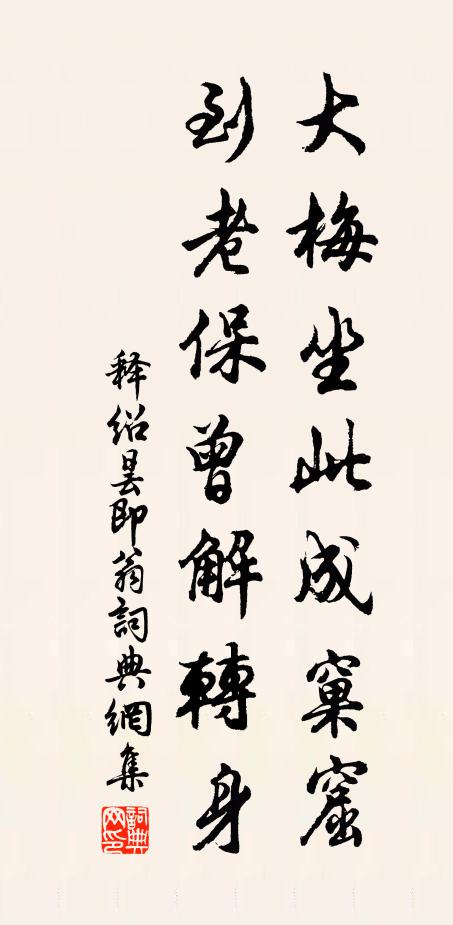 大梅坐此成窠窟
到老保曾解轉身
释绍昙即翁詞典網集
詞典网印